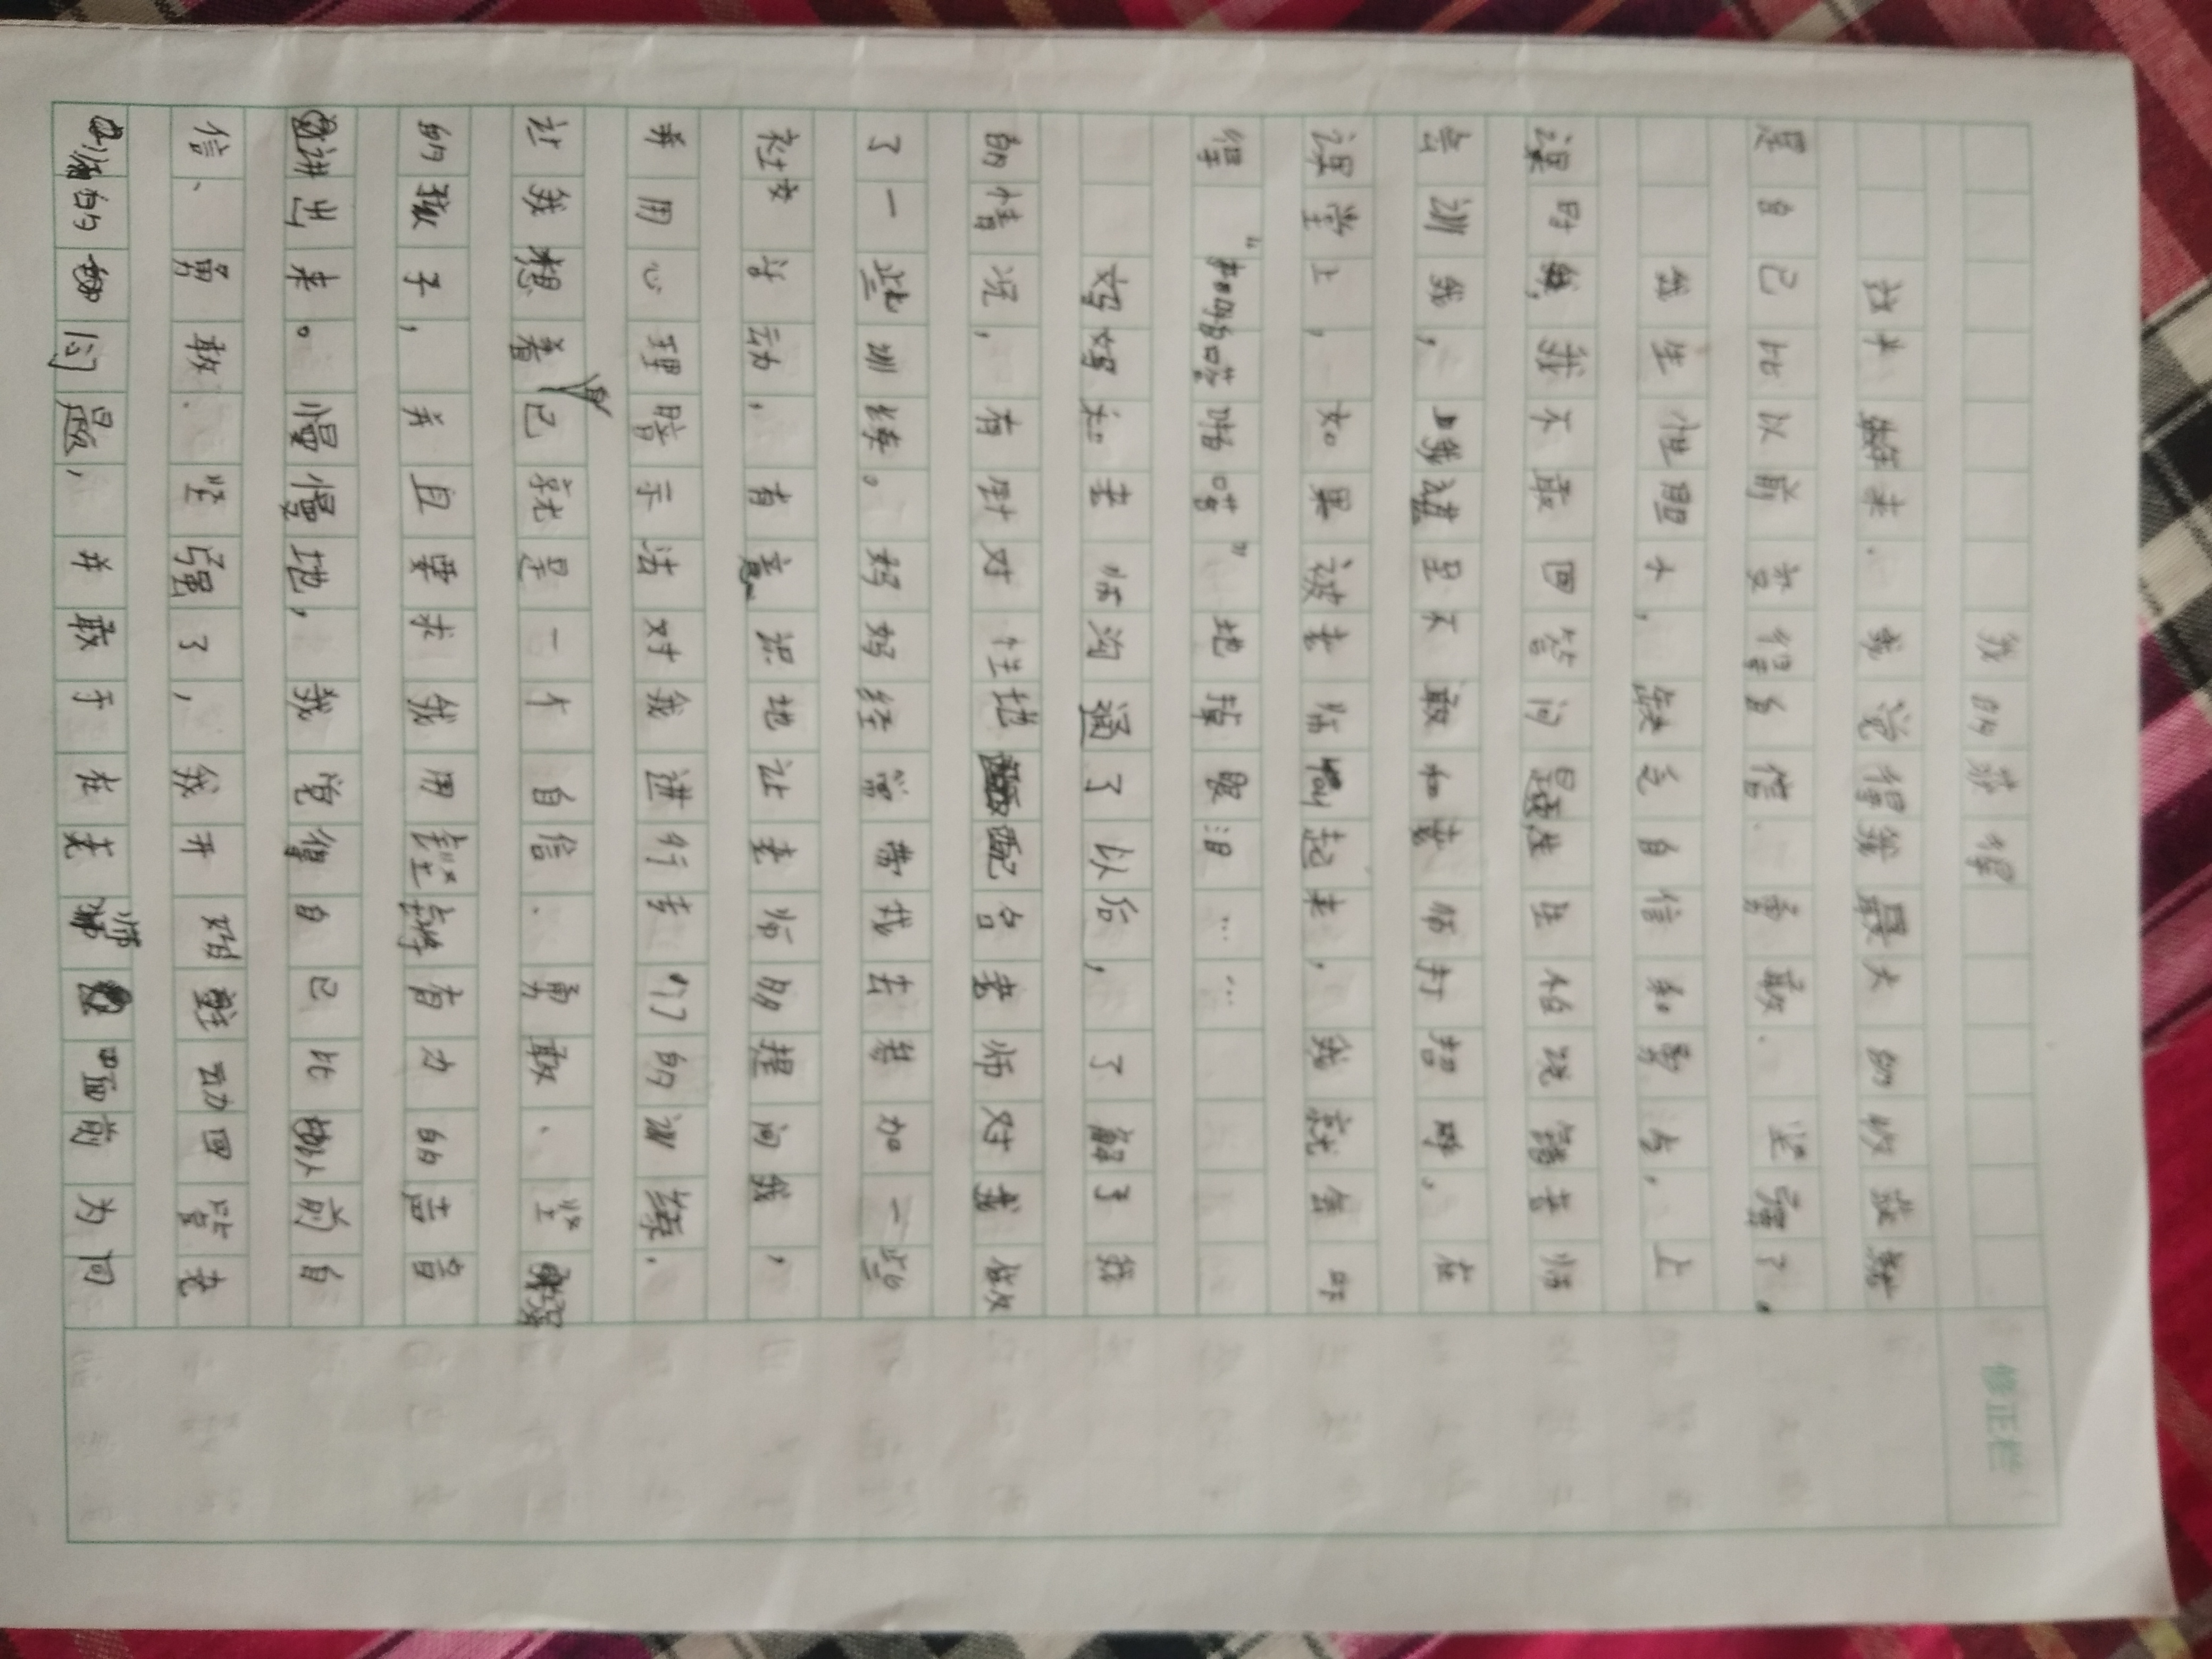 我的获得
这半年来，我觉得我最大的收获就
是自己比以前变得自信、勇敢、坚强了。
我生性胆小，缺乏自信和勇气，上
课时，我不敢回答问题，生怕说错老师
会训我，上学是不敢和老师打招呼。在
课堂上，如果被老师叫起来，我就会吓
得“啪嗒啪嗒”地掉眼泪……
妈妈和老师沟通了以后，了解了我
的情况，有针对性地配合老师对我做
了一些训练。妈妈经常带我去参加一些
社交活动，有意识地让老师多提问我，
并用心理暗示法对我进行专门的训练，
让我想着自己就是一个自信、勇敢、坚强
的孩子，并且要求我用坚定有力的声音
讲出来。慢慢地，我觉得自己比以前自
信、勇敢、坚强了，我开始主动回答老
师的问题，并敢于在老师面前为同
修正栏